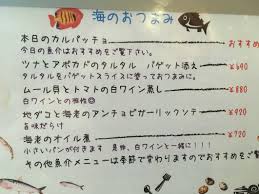 海のおつまみ
本日のカルパッチョ おすすめ
今日の魚介はおすすめをご覧下さい。
ツナとアボカドのタルタル バゲット添え ¥690
タルタルをバゲットスライスに塗っておつまみに。
ムール貝とトマトの白ワイン蒸し ¥880
白ワインとの相性◎
地ダコと海老のアンチョビガーリックソテ ¥920
旨味だらけ
海老のオイル煮 ¥720
小さいパンが付きます 是非、白ワインと一緒に!!!
その他魚介メニューは季節で変わりますのでおすすめをご覧